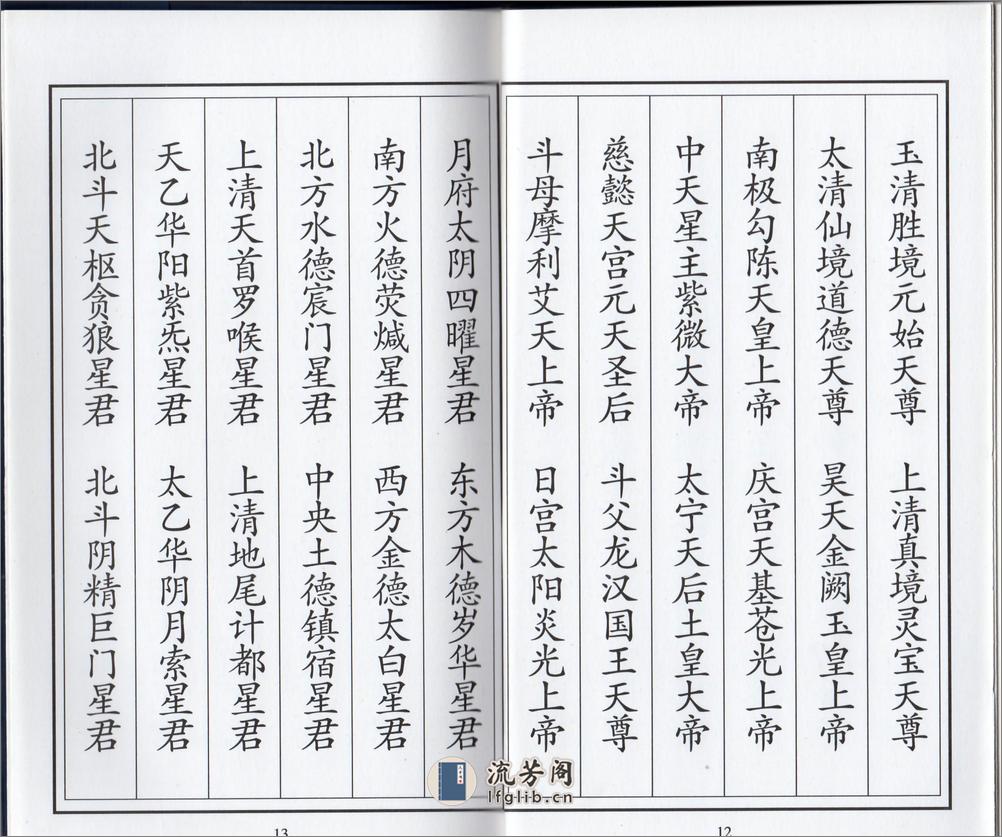 玉清胜境元始天尊 上清真境灵宝天尊
太清仙境道德天尊 昊天金阙玉皇上帝
南极勾陈天皇上帝 庆宫天基苍光上帝
中天星主紫微大帝 太宁天后土皇大帝
慈懿天宫元天圣后 斗父龙汉国王天尊
斗母摩利艾天上帝 日宫太阳炎光上帝
12
月府太阴四曜星君 东方木德岁华星君
南方火德荧煘星君 西方金德太白星君
北方水德宸门星君 中央土德镇宿星君
上清天首罗喉星君 上清地尾计都星君
天乙华阳紫炁星君 太乙华阴月索星君
北斗天枢贪狼星君 北斗阴精巨门星君
13
流芳阁
lfglib.cn